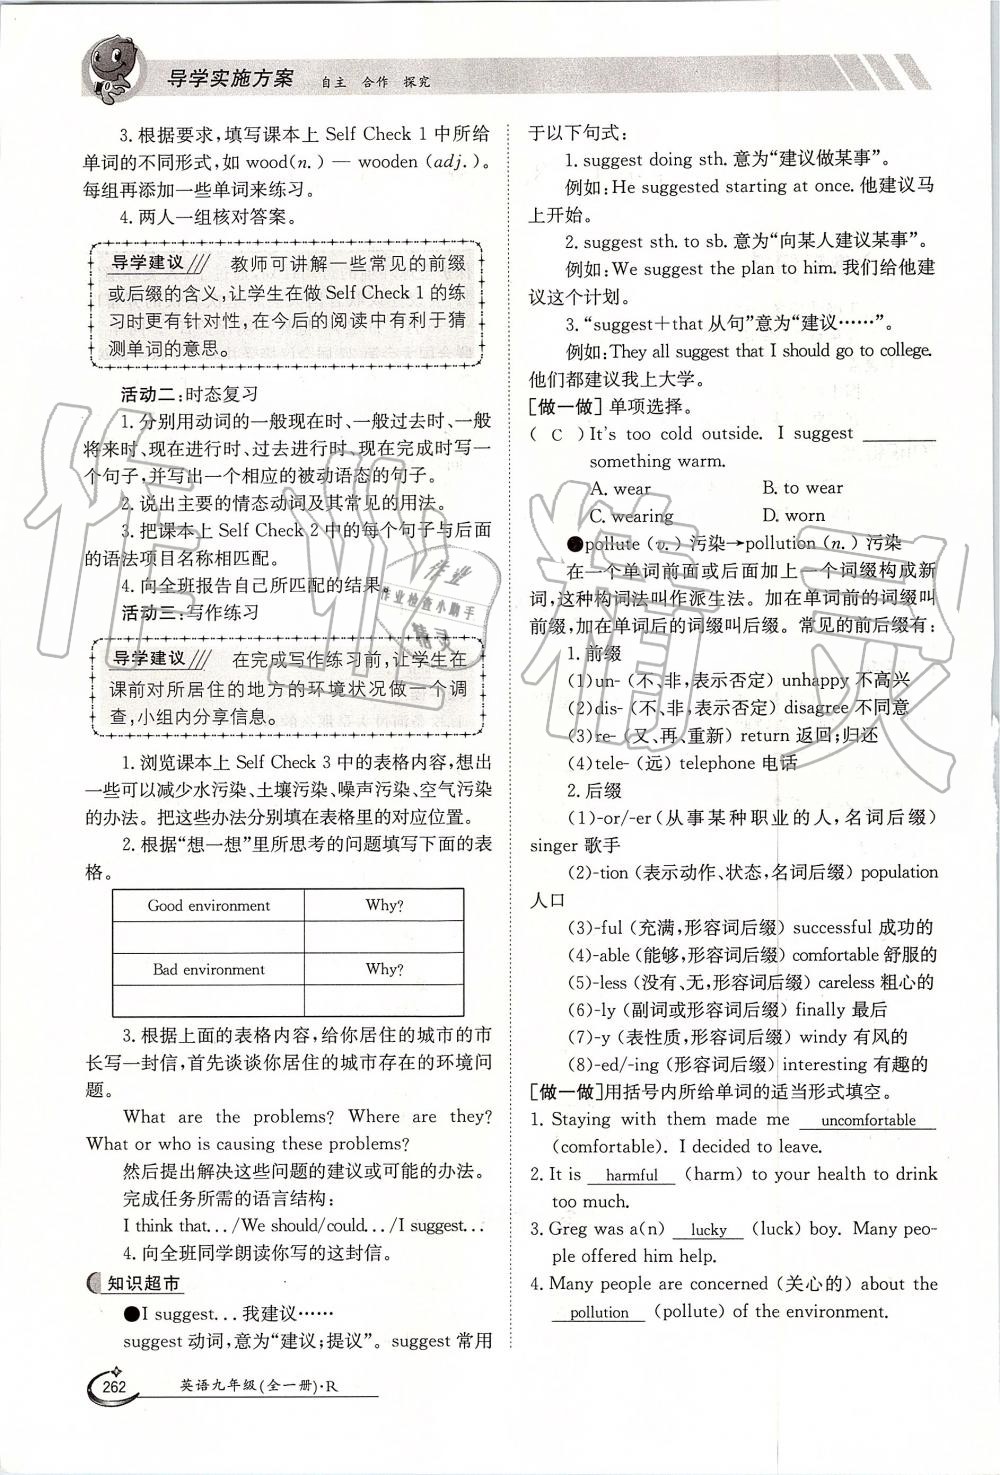 导学实施方案 自主 合作 探究
3.根据要求,填写课本上 Self Check 1 中所给
单词的不同形式,如 wood(n.) — wooden (adj.)。
每组再添加一些单词来练习。
4.两人一组核对答案。
导学建议 教师可讲解一些常见的前缀
或后缀的含义,让学生在做 Self Check 1 的练
习时更有针对性,在今后的阅读中有利于猜
测单词的意思。
活动二:时态复习
1.分别用动词的一般现在时、一般过去时、一般
将来时、现在进行时、过去进行时、现在完成时写一
个句子,并写出一个相应的被动语态的句子。
2.说出主要的情态动词及其常见的用法。
3.把课本上 Self Check 2 中的每个句子与后面
的语法项目名称相匹配。
4.向全班报告自己所匹配的结果
活动三:写作练习
导学建议 在完成写作练习前,让学生在
课前对所居住的地方的环境状况做一个调
查,小组内分享信息。
1.浏览课本上 Self Check 3 中的表格内容,想出
一些可以减少水污染、土壤污染、噪声污染、空气污染
的办法。把这些办法分别填在表格里的对应位置。
2.根据“想一想”里所思考的问题填写下面的表
格。
Good environment Why?
Bad environment Why?
3.根据上面的表格内容,给你居住的城市的市
长写一封信,首先谈谈你居住的城市存在的环境问
题。
What are the problems? Where are they?
What or who is causing these problems?
然后提出解决这些问题的建议或可能的办法。
完成任务所需的语言结构:
I think that.../We should/could.../I suggest...
4.向全班同学朗读你写的这封信。
知识超市
●I suggest...我建议……
suggest 动词,意为“建议;提议”。suggest 常用
于以下句式:
1. suggest doing sth. 意为“建议做某事”。
例如:He suggested starting at once. 他建议马
上开始。
2. suggest sth. to sb. 意为“向某人建议某事”。
例如:We suggest the plan to him. 我们给他建
议这个计划。
3. “suggest+that 从句”意为“建议……”。
例如:They all suggest that I should go to college.
他们都建议我上大学。
[做一做] 单项选择。
( C )It's too cold outside. I suggest ________
something warm.
A. wear B. to wear
C. wearing D. worn
●pollute (v.) 污染→pollution (n.) 污染
在一个单词前面或后面加上一个词缀构成新
词,这种构词法叫作派生法。加在单词前的词缀叫
前缀,加在单词后的词缀叫后缀。常见的前后缀有:
1. 前缀
(1)un- (不、非,表示否定) unhappy 不高兴
(2)dis- (不、非,表示否定) disagree 不同意
(3)re- (又、再、重新) return 返回;归还
(4)tele- (远) telephone 电话
2. 后缀
(1)-or/-er (从事某种职业的人,名词后缀)
singer 歌手
(2)-tion (表示动作、状态,名词后缀) population
人口
(3)-ful (充满,形容词后缀) successful 成功的
(4)-able (能够,形容词后缀) comfortable 舒服的
(5)-less (没有、无,形容词后缀) careless 粗心的
(6)-ly (副词或形容词后缀) finally 最后
(7)-y (表性质,形容词后缀) windy 有风的
(8)-ed/-ing (形容词后缀) interesting 有趣的
[做一做]用括号内所给单词的适当形式填空。
1. Staying with them made me uncomfortable
(comfortable). I decided to leave.
2. It is harmful (harm) to your health to drink
too much.
3. Greg was a(n) lucky (luck) boy. Many peo-
ple offered him help.
4. Many people are concerned (关心的) about the
pollution (pollute) of the environment.
262 英语九年级(全一册)·R
作业精灵
作业
作业检查小助手
精灵